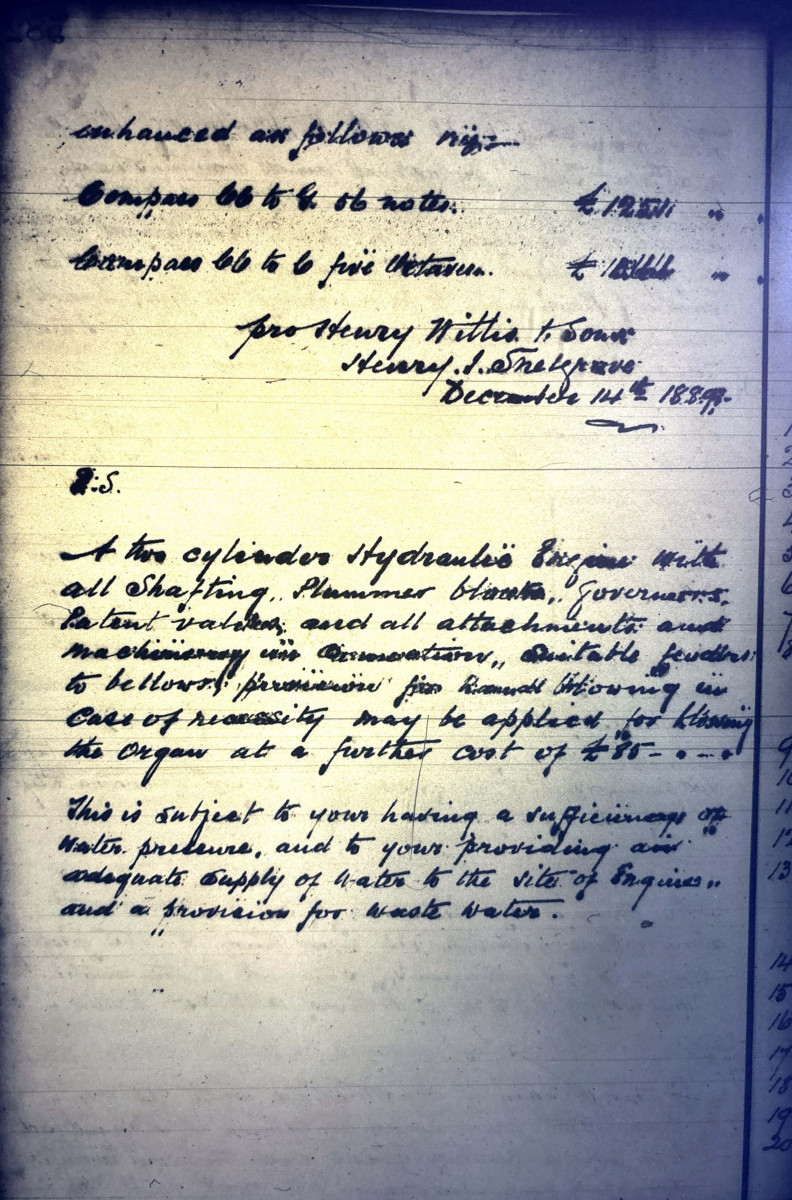 enhanced as follows viz:-
Compass CC to G 56 notes. £ 125 " "
Compass CC to C five Octaves. £ " "
pro Henry Willis & Sons
Henry. J. Snelgrove
December 14th 189
P.S.
A two cylinder Hydraulic Engine with
all Shafting, Plummer blocks, Governors,
Patent valves, and all attachments and
machinery in connection, suitable feeders
to bellows, provision for hand blowing in
case of necessity may be applied for blowing
the Organ at a further cost of £85 - . - .
This is subject to your having a sufficiency of
water pressure, and to your providing an
adequate supply of water to the site of Engine,
and a provision for waste water.
1
2
3
4
5
6
7
8
9
10
11
12
13
14
15
16
17
18
19
20